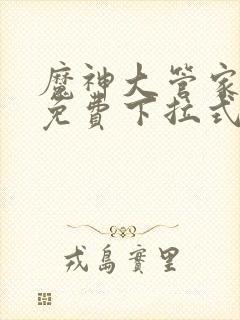 魔神大管家
免費下拉式
戎島實里